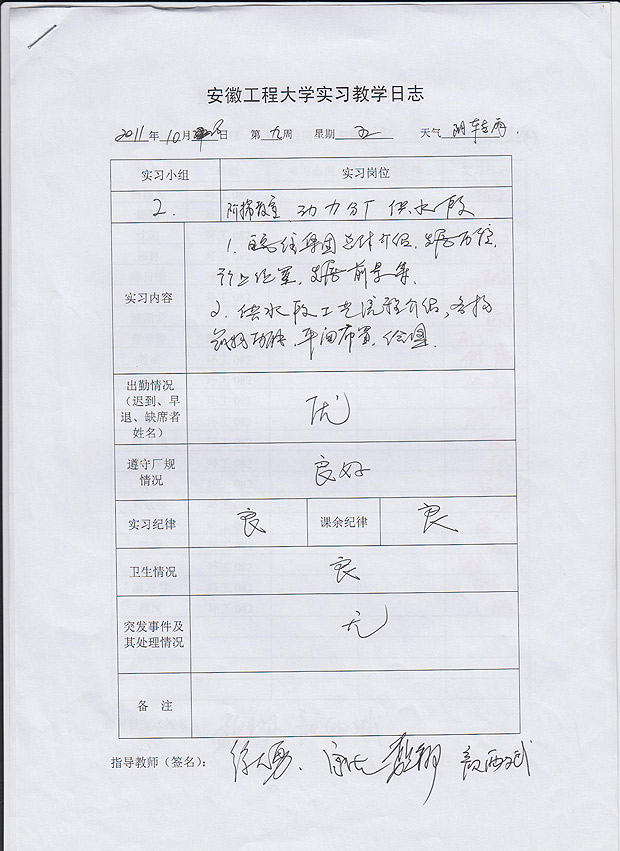 安徽工程大学实习教学日志
2011年10月 日 第九周 星期五 天气 阴转雨.
实习小组 实习岗位
2. 阶梯教室、动力分厂供水段
实习内容
1. 集团总体介绍,发展历程,
行业位置,发展前景等.
2. 供水段工艺流程介绍,各构
筑物功能,平面布置,绘图.
出勤情况
(迟到、早
退、缺席者
姓名)
优
遵守厂规
情况
良好
实习纪律 良 课余纪律 良
卫生情况 良
突发事件及
其处理情况
无
备 注
指导教师(签名): 徐大勇、